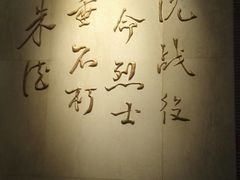 沈战役
命烈士
垂不朽
朱德